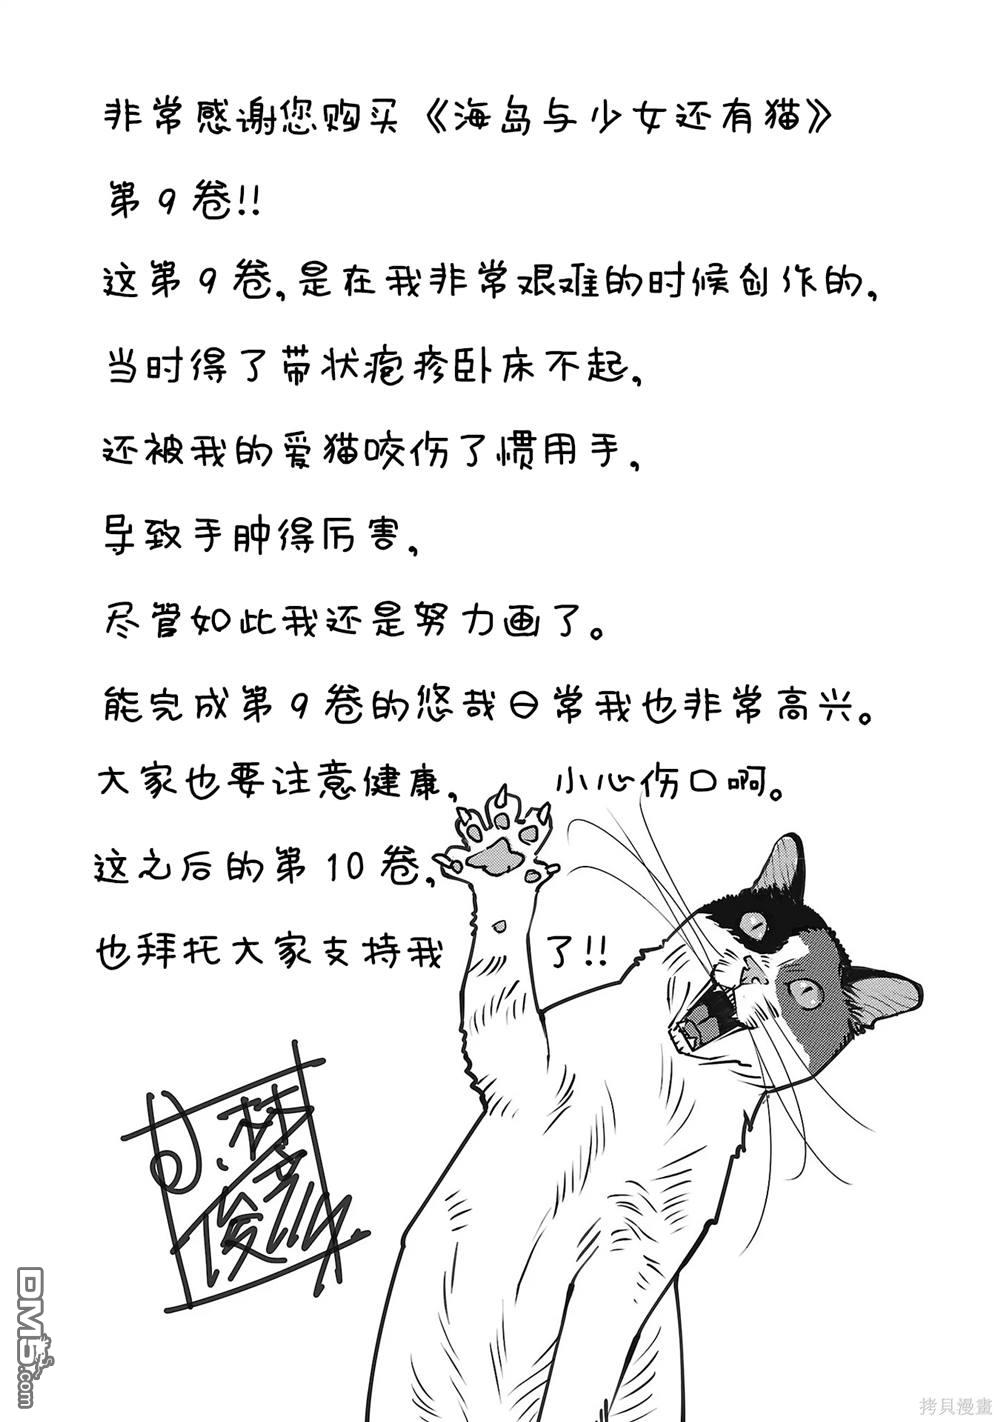 非常感谢您购买《海岛与少女还有猫》
第9卷!!
这第9卷,是在我非常艰难的时候创作的,
当时得了带状疱疹卧床不起,
还被我的爱猫咬伤了惯用手,
导致手肿得厉害,
尽管如此我还是努力画了。
能完成第9卷的悠哉日常我也非常高兴。
大家也要注意健康, 小心伤口啊。
这之后的第10卷,
也拜托大家支持我 了!!
小林俊彦
DM5.com
拷貝漫畫